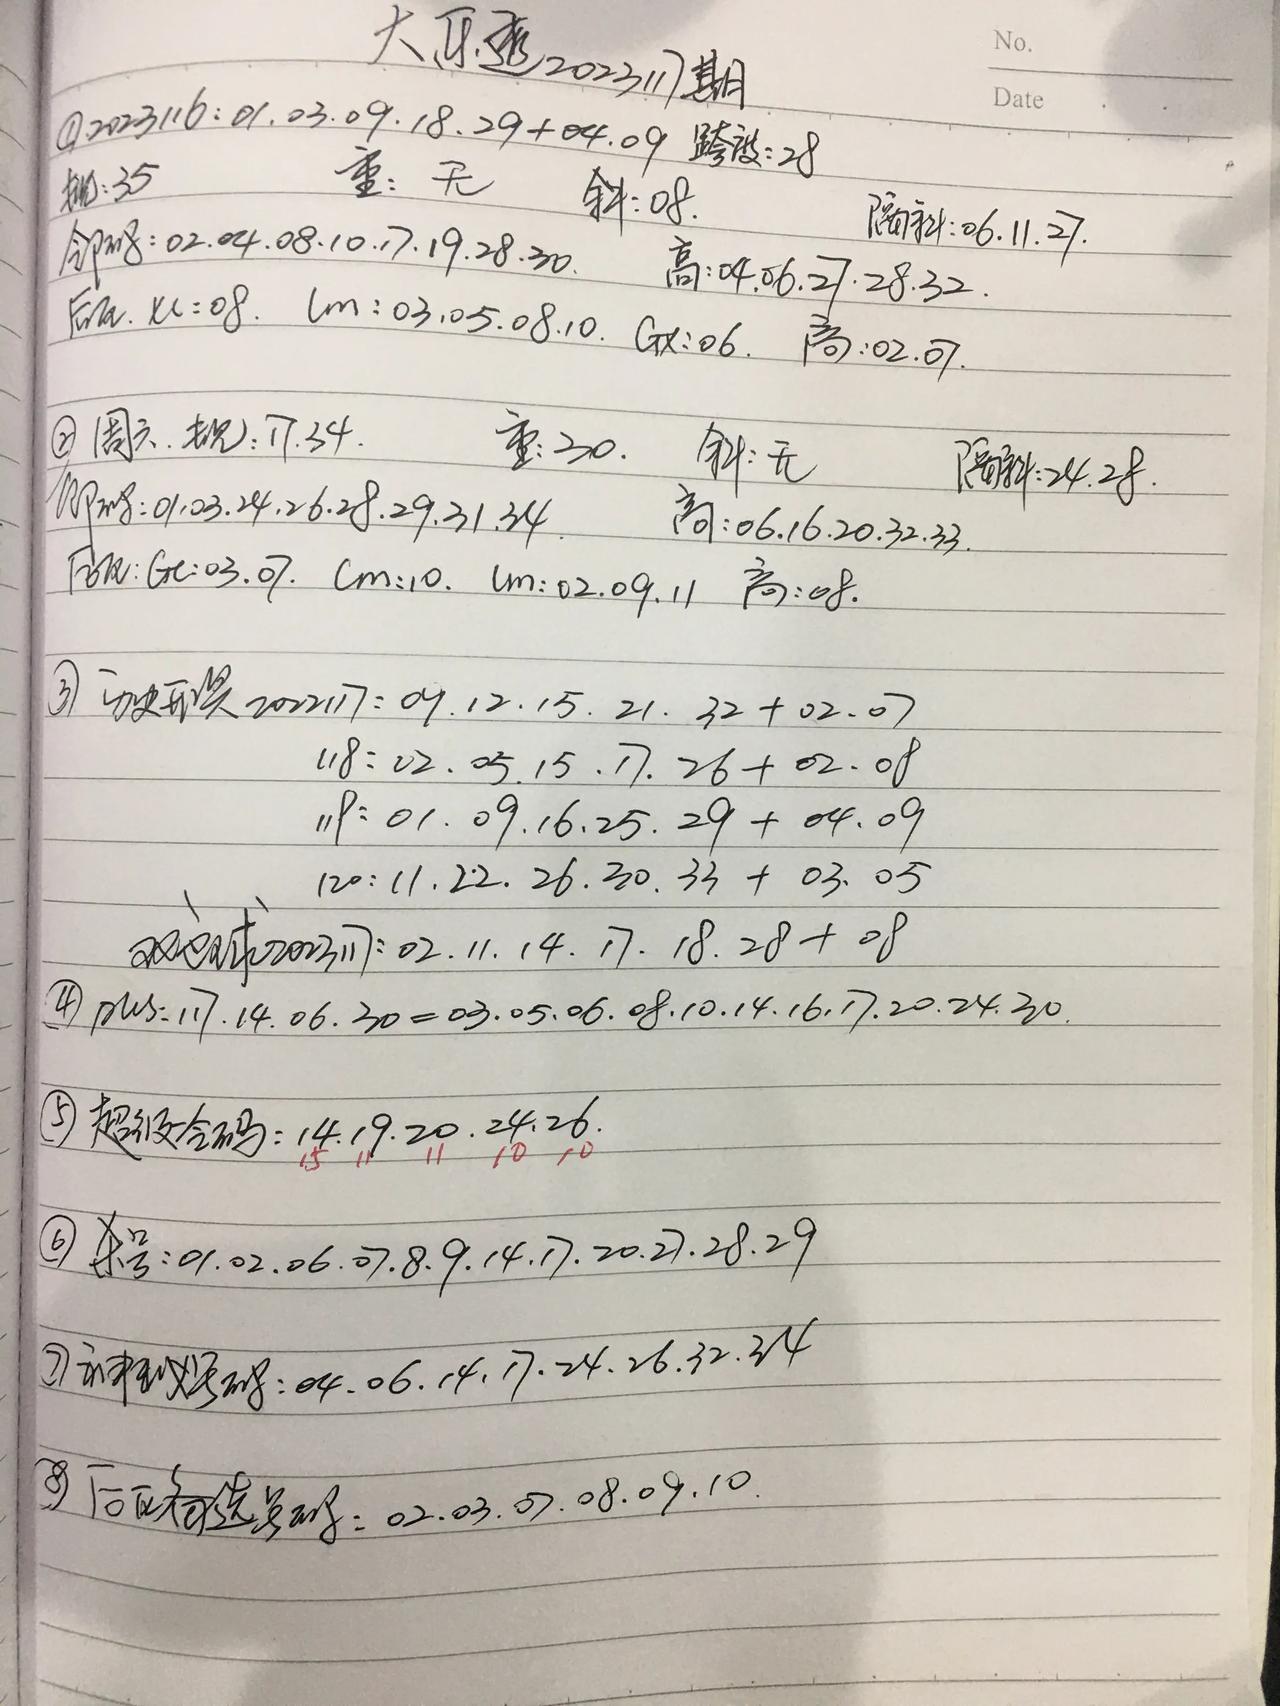 大乐透2023117期
No.
Date
①2023116:01.03.09.18.29+04.09 跨度:28
规:35 重:无 斜:08. 隔斜:06.11.27.
邻码:02.04.08.10.17.19.28.30. 高:04.06.27.28.32.
后区. xl:08. Lm:03.05.08.10. Gx:06. 高:02.07.
②周六.规:17.34. 重:30. 斜:无 隔斜:24.28.
邻码:01.03.24.26.28.29.31.34 高:06.16.20.32.33.
后区:Gx:03.07. Cm:10. Lm:02.09.11 高:08.
③历史开奖2022117:04.12.15.21.32+02.07
118:02.05.15.17.26+02.08
119:01.09.16.25.29+04.09
120:11.22.26.30.33+03.05
双色球2023117:02.11.14.17.18.28+08
④plus:17.14.06.30=03.05.06.08.10.14.16.17.20.24.30.
⑤超级合码:14.19.20.24.26.
15 11 11 10 10
⑥杀号:01.02.06.07.8.9.14.17.20.27.28.29
⑦号码:04.06.14.17.24.26.32.34
⑧后区可选号码:02.03.07.08.09.10.